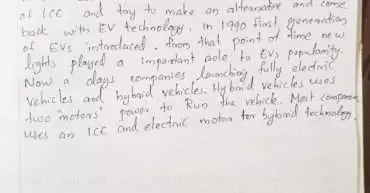 of ICE and try to make an alternator and come
back with EV technology. In 1990 first generation
of EVs introduced. from that point of time new
lights played a important role to EVs popularity.
Now a days companies launching fully electric
vehicles and hybrid vehicles. Hybrid vehicles uses
two motors' power to Run the vehicle. Most companies
uses an ICE and electric motor for hybrid technology.